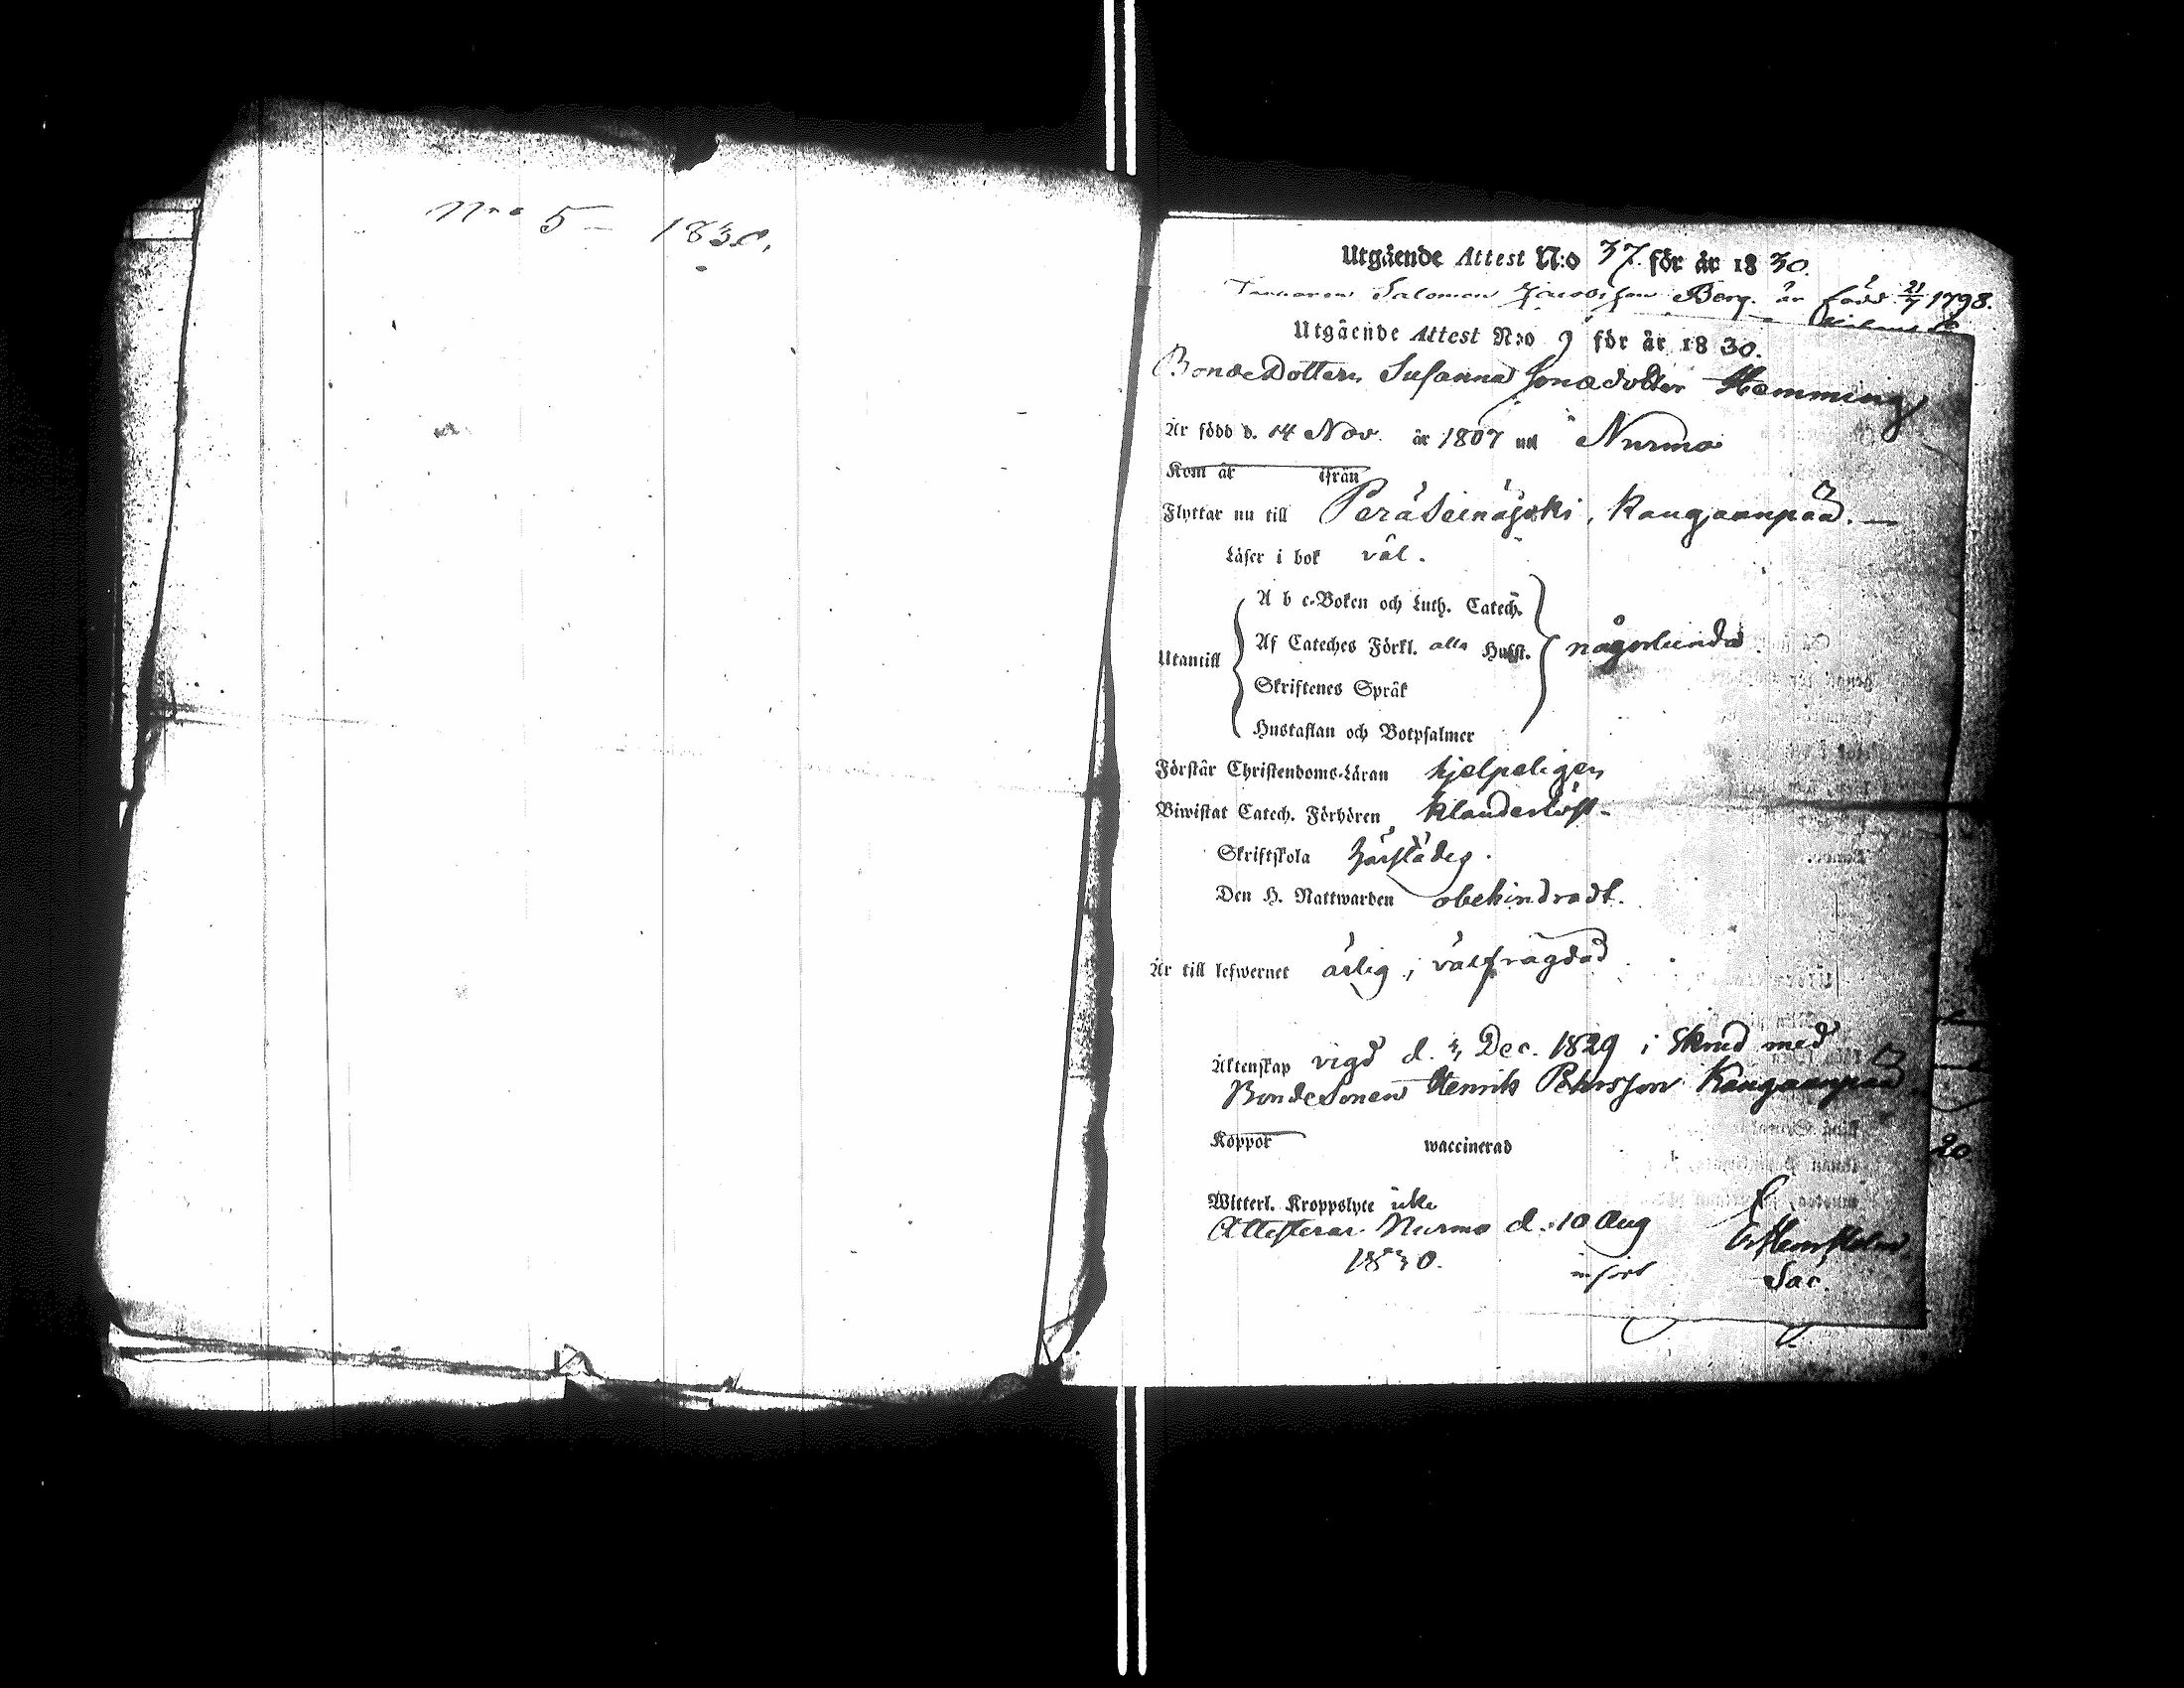 Nro 5 - 1830.
Utgående Attest N:o 37. för år 1830.
Salomon Jacobsson Berg. är född 21/7 1798.
Utgående Attest N:o 9 för år 1830.
BondeDottern Susanna Jonædotter Hemming
Är född d. 14 Nov. år 1807 uti Nurmo
Kom år ifrån
Flyttar nu till Peräseinäjoki, Kangaanpää. —
Läser i bok väl.
A b c-Boken och Luth. Catech.
Af Cateches Förkl. alla Hufst. någorlunda
Utantill
Skriftenes Språk
Hustaflan och Botpsalmer
Förstår Christendoms-Läran hjelpeligen
Biwistat Catech. Förhören klanderlöst-
Skriftskola härstädes.
Den H. Nattwarden obehindradt.
Är till lefwernet ärlig, välfrägdad
Äktenskap vigd d. Dec. 1829 i Skrud med
BondeSonen Henrik Pehrsson Kangaanpää
Koppor waccinerad
20
Witterl. Kroppslyte icke
Attesterar Nurmo d. 10 Aug
1830.
infört Sac.